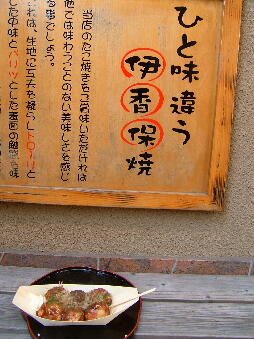 ひと味違う
伊香保焼
当店のたこ焼きをご賞味いただければ
他では味わうことのない美味しさを感じ
る事でしょう。
これは、生地に工夫を凝らしトローリと
した中味とパリッとした表面の